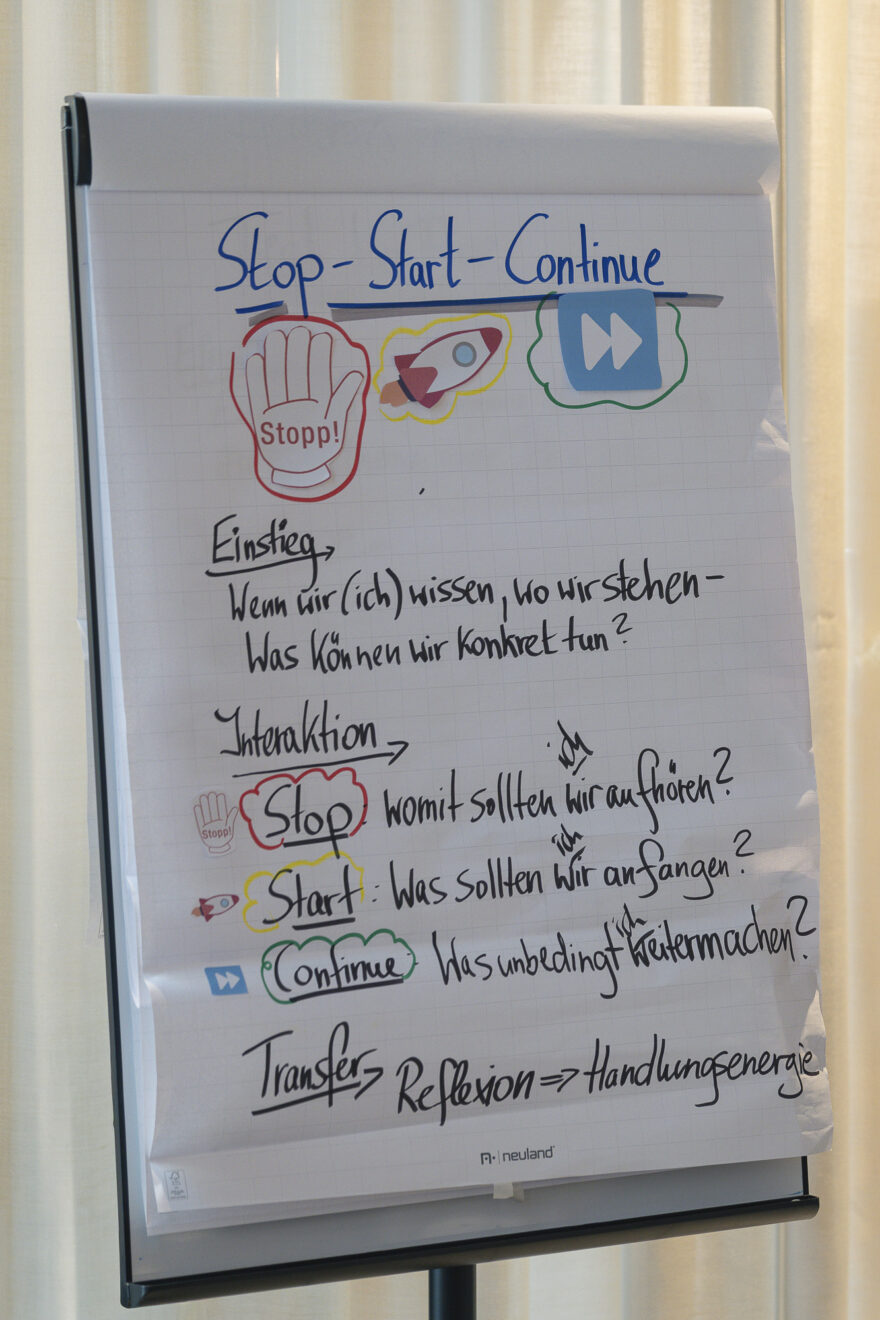 Stop - Start - Continue
Stopp!
Einstieg
Wenn wir (ich) wissen, wo wir stehen -
Was können wir konkret tun?
Interaktion
ich
Stopp! Stop: Womit sollten wir aufhören?
ich
Start: Was sollten wir anfangen?
ich
Continue: Was unbedingt weitermachen?
Transfer Reflexion => Handlungsenergie
neuland